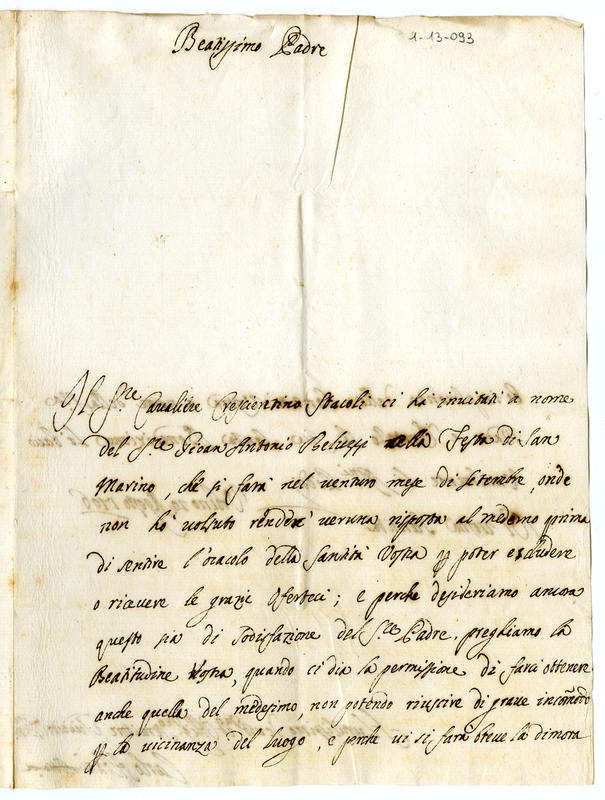 Beatissimo Padre
1-13-093
Il S.re Cavaliere Crescentino Stacoli ci ha invitati a nome
del S.re Gioan Antonio Beluzzi nella Festa di San
Marino, che si farà nel venturo mese di setembre, onde
non hò volsuto rendere veruna risposta al medemo prima
di sentire l'oracolo della Santità Vostra p poter escludere
o ricevere le grazie oferteci; e perche desideriamo ancora
questo sia di sodisfazione del S.re Padre, preghiamo la
Beatitudine Vostra, quando ci dia la permissione di farci ottenere
anche quella del medesimo, non potendo riuscire di grave incomodo
p la vicinanza del luogo, e perche vi si farà breve la dimora